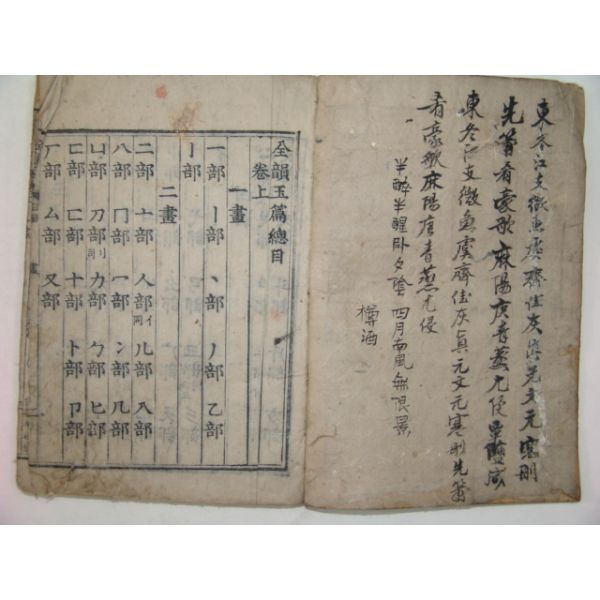 東冬江支微魚虞齊佳灰眞元文元寒刪
先簫肴豪歌麻陽庚青蒸尤侵覃鹽咸
東冬江支微魚虞齊佳灰眞元文元寒刪先簫
肴豪歌麻陽庚青蒸尤侵
半醉半醒臥夕陰 四月南風無限景
樽酒
全韻玉篇總目
卷上
一畫
一部 丨部 丶部 丿部 乙部
亅部
二畫
二部 亠部 人部亻同 儿部 入部
八部 冂部 冖部 冫部 几部
凵部 刀部刂同 力部 勹部 匕部
匚部 匸部 十部 卜部 卩部
厂部 厶部 又部